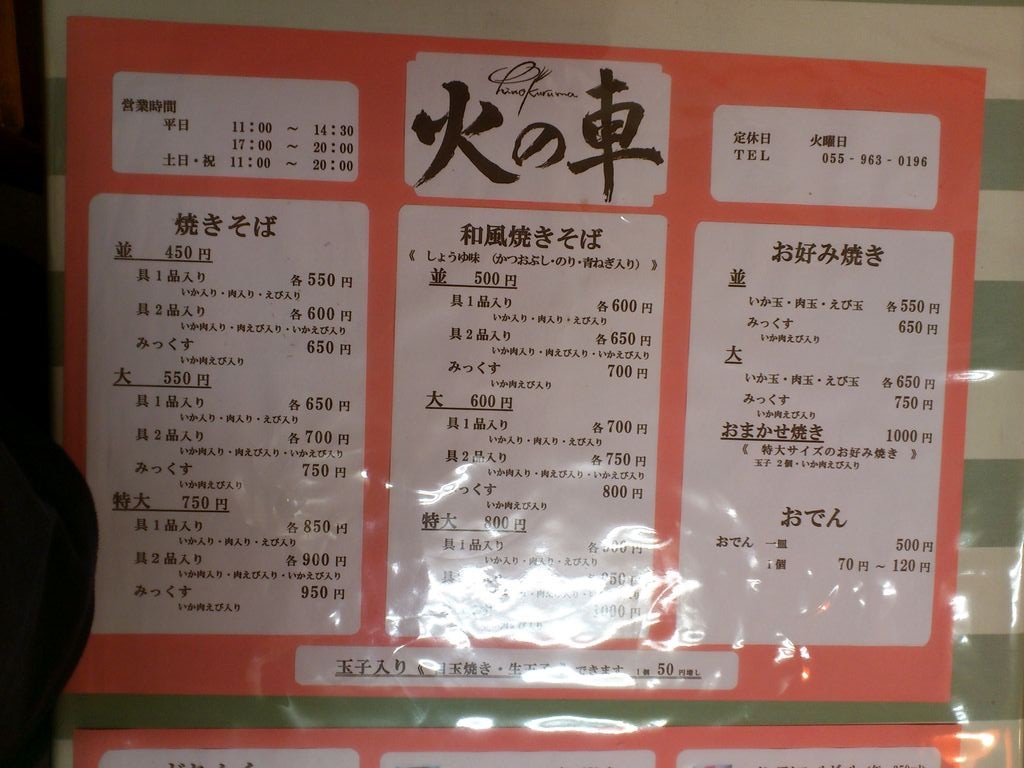 営業時間
平日 11:00 ～ 14:30
17:00 ～ 20:00
土日・祝 11:00 ～ 20:00
hinokuruma
火の車
定休日 火曜日
TEL 055-963-0196
焼きそば
並 450円
具1品入り 各550円
いか入り・肉入り・えび入り
具2品入り 各600円
いか肉入り・肉えび入り・いかえび入り
みっくす 650円
いか肉えび入り
大 550円
具1品入り 各650円
いか入り・肉入り・えび入り
具2品入り 各700円
いか肉入り・肉えび入り・いかえび入り
みっくす 750円
いか肉えび入り
特大 750円
具1品入り 各850円
いか入り・肉入り・えび入り
具2品入り 各900円
いか肉入り・肉えび入り・いかえび入り
みっくす 950円
いか肉えび入り
和風焼きそば
《 しょうゆ味 (かつおぶし・のり・青ねぎ入り) 》
並 500円
具1品入り 各600円
いか入り・肉入り・えび入り
具2品入り 各650円
いか肉入り・肉えび入り・いかえび入り
みっくす 700円
いか肉えび入り
大 600円
具1品入り 各700円
いか入り・肉入り・えび入り
具2品入り 各750円
いか肉入り・肉えび入り・いかえび入り
みっくす 800円
いか肉えび入り
特大 800円
具1品入り 各900円
いか入り・肉入り・えび入り
950円
いかえび入り
1000円
いか肉えび入り
お好み焼き
並
いか玉・肉玉・えび玉 各550円
みっくす 650円
いか肉えび入り
大
いか玉・肉玉・えび玉 各650円
みっくす 750円
いか肉えび入り
おまかせ焼き 1000円
《 特大サイズのお好み焼き 》
玉子 2個・いか肉えび入り
おでん
おでん 一皿 500円
1個 70円 ～ 120円
玉子入り 《 目玉焼き・生玉子 》 できます 1個 50円増し